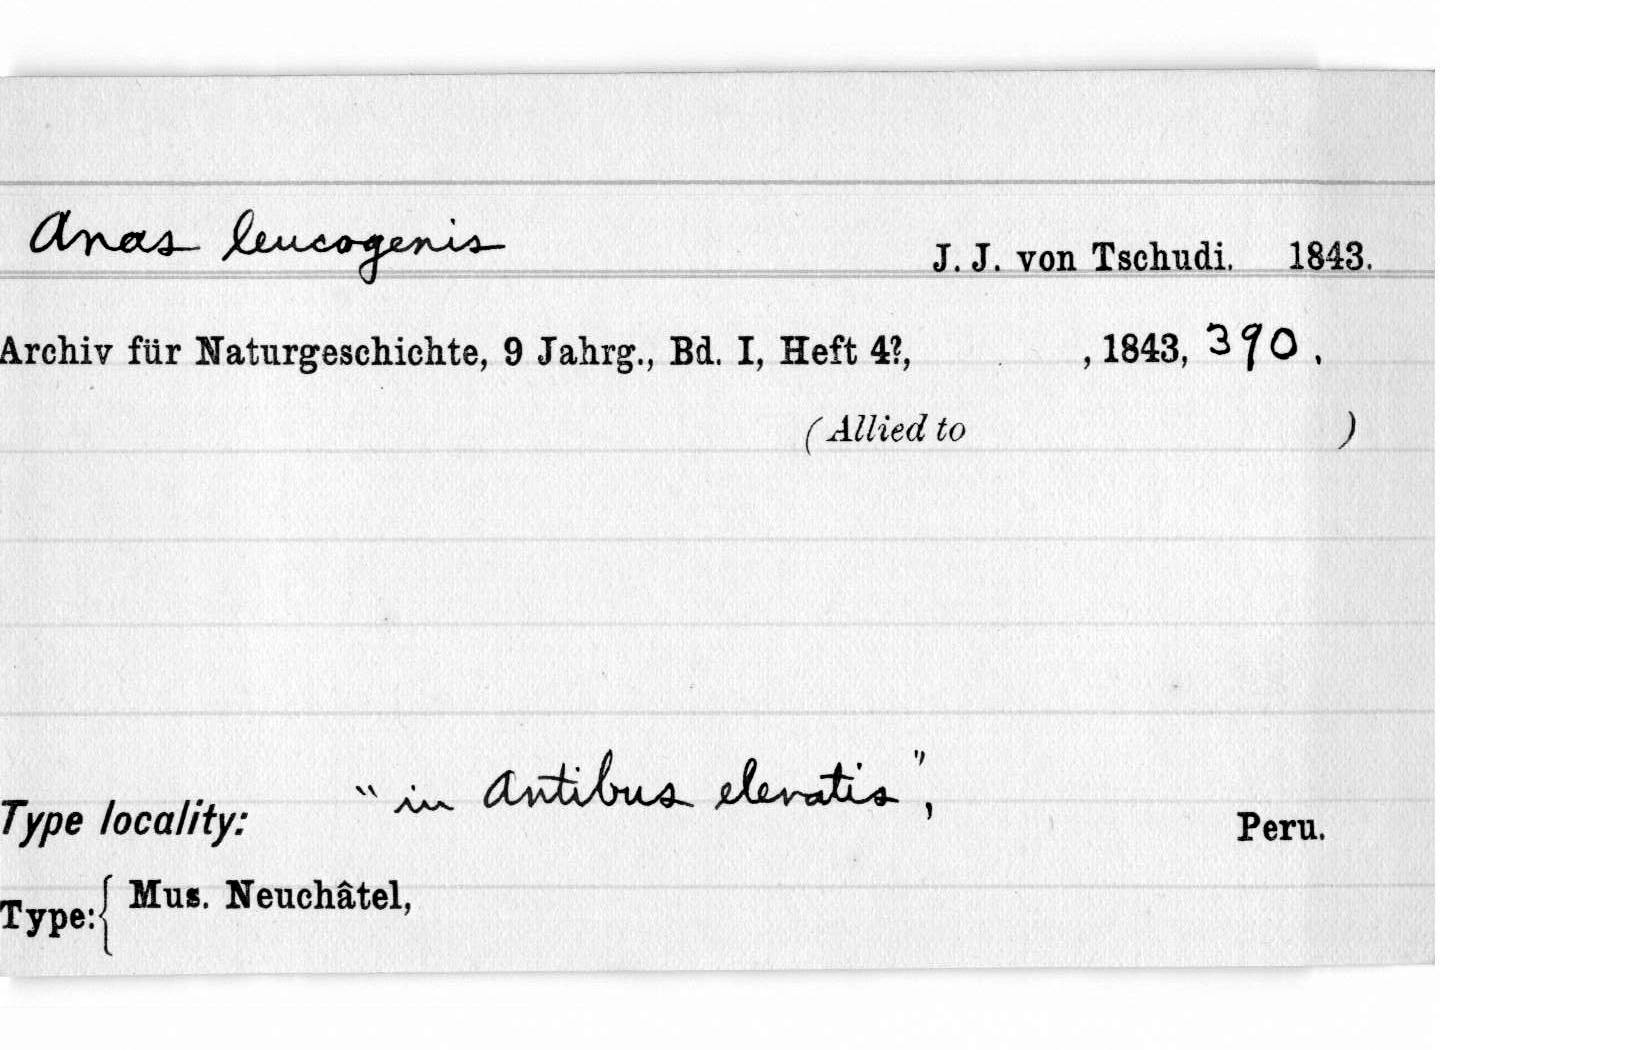 Anas leucogenis J. J. von Tschudi. 1843.
Archiv für Naturgeschichte, 9 Jahrg., Bd. I, Heft 4?, , 1843, 390.
(Allied to )
Type locality: "in Antibus elevatis", Peru.
Type:{ Mus. Neuchâtel,